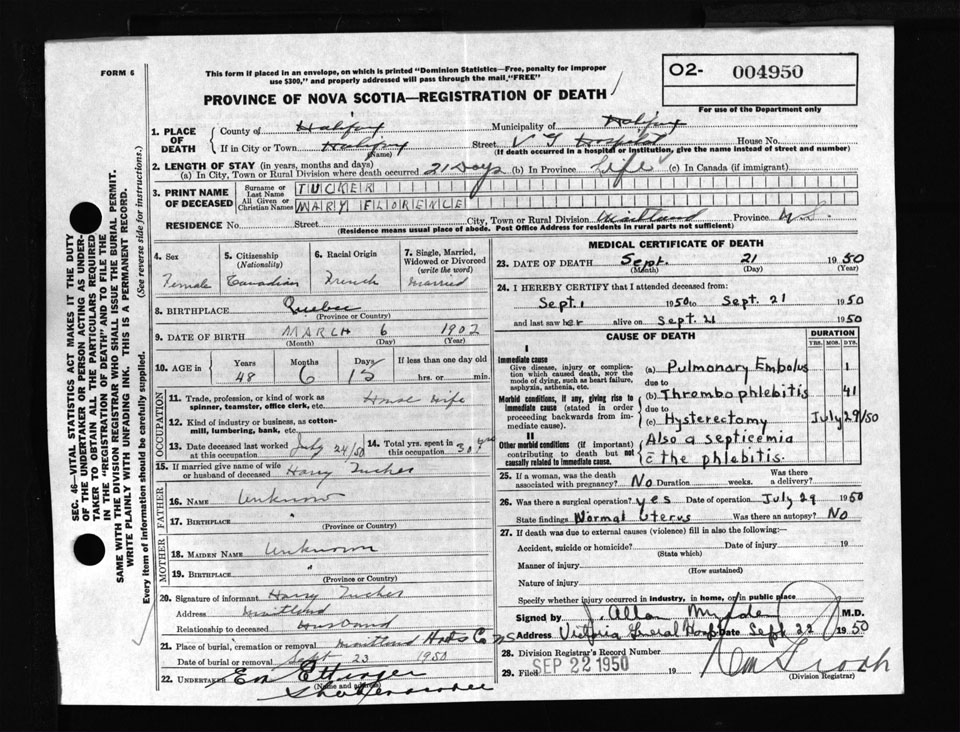 FORM 6
This form if placed in an envelope, on which is printed "Dominion Statistics—Free, penalty for improper
use $300," and properly addressed will pass through the mail, "FREE"
O2- 004950
For use of the Department only
PROVINCE OF NOVA SCOTIA—REGISTRATION OF DEATH
1. PLACE OF DEATH
County of Halifax Municipality of Halifax
If in City or Town Halifax Street V G Hospital House No.
(Name) (If death occurred in a hospital or institution, give the name instead of street and number)
2. LENGTH OF STAY (in years, months and days)
(a) In City, Town or Rural Division where death occurred 21 Days (b) In Province Life (c) In Canada (if immigrant)
3. PRINT NAME OF DECEASED
Surname or Last Name TUCKER
All Given or Christian Names MARY FLORENCE
RESIDENCE No. Street City, Town or Rural Division Maitland Province N.S.
(Residence means usual place of abode. Post Office Address for residents in rural parts not sufficient)
4. Sex Female
5. Citizenship (Nationality) Canadian
6. Racial Origin French
7. Single, Married, Widowed or Divorced (write the word) Married
8. BIRTHPLACE Quebec
(Province or Country)
9. DATE OF BIRTH MARCH 6 1902
(Month) (Day) (Year)
10. AGE in Years 48 Months 6 Days 15 If less than one day old hrs. or min.
OCCUPATION
11. Trade, profession, or kind of work as spinner, teamster, office clerk, etc. House Wife
12. Kind of industry or business, as cotton-mill, lumbering, bank, etc.
13. Date deceased last worked at this occupation July 24/50
14. Total yrs. spent in this occupation 30 yrs
15. If married give name of wife or husband of deceased Harry Tucker
FATHER
16. NAME Unknown
17. BIRTHPLACE "
(Province or Country)
MOTHER
18. MAIDEN NAME Unknown
19. BIRTHPLACE "
(Province or Country)
20. Signature of informant Harry Tucker
Address Maitland
Relationship to deceased Husband
21. Place of burial, cremation or removal Maitland Hants Co NS
Date of burial or removal Sept 23 1950
22. UNDERTAKER Ettinger
(Name and address) Shubenacadie
MEDICAL CERTIFICATE OF DEATH
23. DATE OF DEATH Sept. 21 1950
(Month) (Day) (Year)
24. I HEREBY CERTIFY that I attended deceased from:
Sept. 1 1950 to Sept. 21 1950
and last saw her alive on Sept. 21 1950
CAUSE OF DEATH
DURATION
YRS. MOS. DYS.
I
Immediate cause
Give disease, injury or complication which caused death, NOT the mode of dying, such as heart failure, asphyxia, asthenia, etc.
(a) Pulmonary Embolus 1
due to
(b) Thrombophlebitis 41
Morbid conditions, if any, giving rise to immediate cause (stated in order proceeding backwards from immediate cause).
due to
(c) Hysterectomy July 29/50
II
Other morbid conditions (if important) contributing to death but not causally related to immediate cause.
Also a septicemia
c̄ the phlebitis.
25. If a woman, was the death associated with pregnancy? No Duration weeks. Was there a delivery?
26. Was there a surgical operation? yes Date of operation July 29 1950
State findings Normal Uterus Was there an autopsy? No
27. If death was due to external causes (violence) fill in also the following:—
Accident, suicide or homicide? Date of injury 19
(State which)
Manner of injury
(How sustained)
Nature of injury
Specify whether injury occurred in industry, in home, or in public place
Signed by J. Allan M.D.
Address Victoria General Hosp Date Sept 22 1950
28. Division Registrar's Record Number
29. Filed SEP 22 1950 19
(Division Registrar)
SEC. 46—VITAL STATISTICS ACT MAKES IT THE DUTY
OF THE UNDERTAKER OR PERSON ACTING AS UNDERTAKER TO OBTAIN ALL THE PARTICULARS REQUIRED
IN THE "REGISTRATION OF DEATH" AND TO FILE THE
SAME WITH THE DIVISION REGISTRAR WHO SHALL ISSUE THE BURIAL PERMIT.
WRITE PLAINLY WITH UNFADING INK. THIS IS A PERMANENT RECORD.
Every item of information should be carefully supplied. (See reverse side for instructions.)